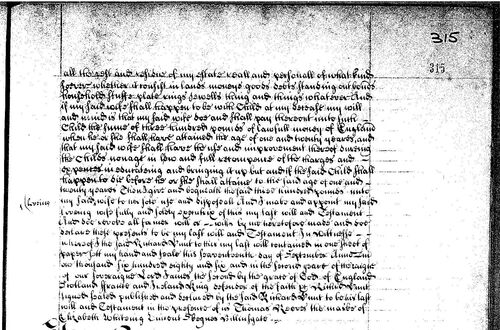 315
315
all the rest and residue of my estate reall and personall of what kind
soever whether it consist in lands moneys goods debts standing out bonds
household stuffe plate rings Jewells thing and things whatever And
if my said wife shall happen to be with Child at my decease my will
and mind is that my said wife doe and shall pay thereout unto such
Child the sume of three hundred pounds of lawfull money of England
when he or she shall have attained the age of one and twenty yeares, and
that my said wife shall have the use and improvement thereof dureing
the Childs nonage in lew and full recompence of the charges and
expences in educateing and bringing it up but and if the said Child shall
happen to die before he or she shall attaine to the said age of one and
twenty yeares Then I give and bequeath the said three hundred pounds unto
my said wife to her sole use and disposeall And I make and appoint my said
loveing wife fully and solely executrix of this my last will and Testament
And doe revoke all former wills by me heretofore made and doe
declare these presents to be my last will and Testament In Wittnesse
whereof I the said Richard to this my last will contained in one sheet of
paper sett my hand and seale this seaventeenth day of September Anno Dni
one thousand six hundred eighty and six and in the second yeare of the raigne
of our soveraigne Lord James the second by the grace of God of England
Scotland ffrance and Ireland King defender of the faith Richard
signed sealed published and declared by the said Richard to be his last
will and Testament in the presence of us Thomas the marke of
Elizabeth Whitering